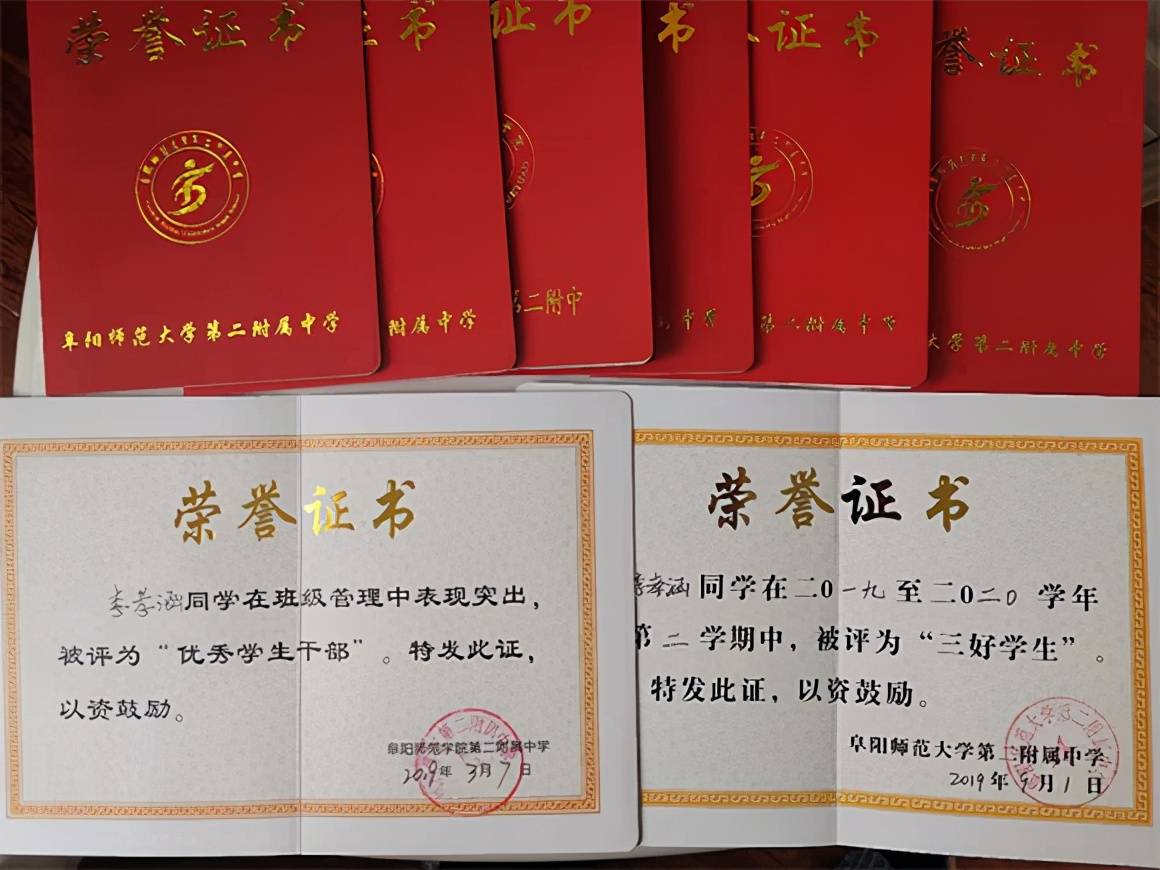 荣誉证书
证书
证书
书
证书
誉证书
阜阳师范大学第二附属中学
附属中学
第二附中
中学
第二附属中学
大学第二附属中学
荣誉证书
李孝涵同学在班级管理中表现突出，
被评为“优秀学生干部”。特发此证，
以资鼓励。
阜阳师范学院第二附属中学
2019年3月7日
荣誉证书
李孝涵同学在二〇一九至二〇二〇学年
第二学期中，被评为“三好学生”。
特发此证，以资鼓励。
阜阳师范大学第二附属中学
2019年9月1日